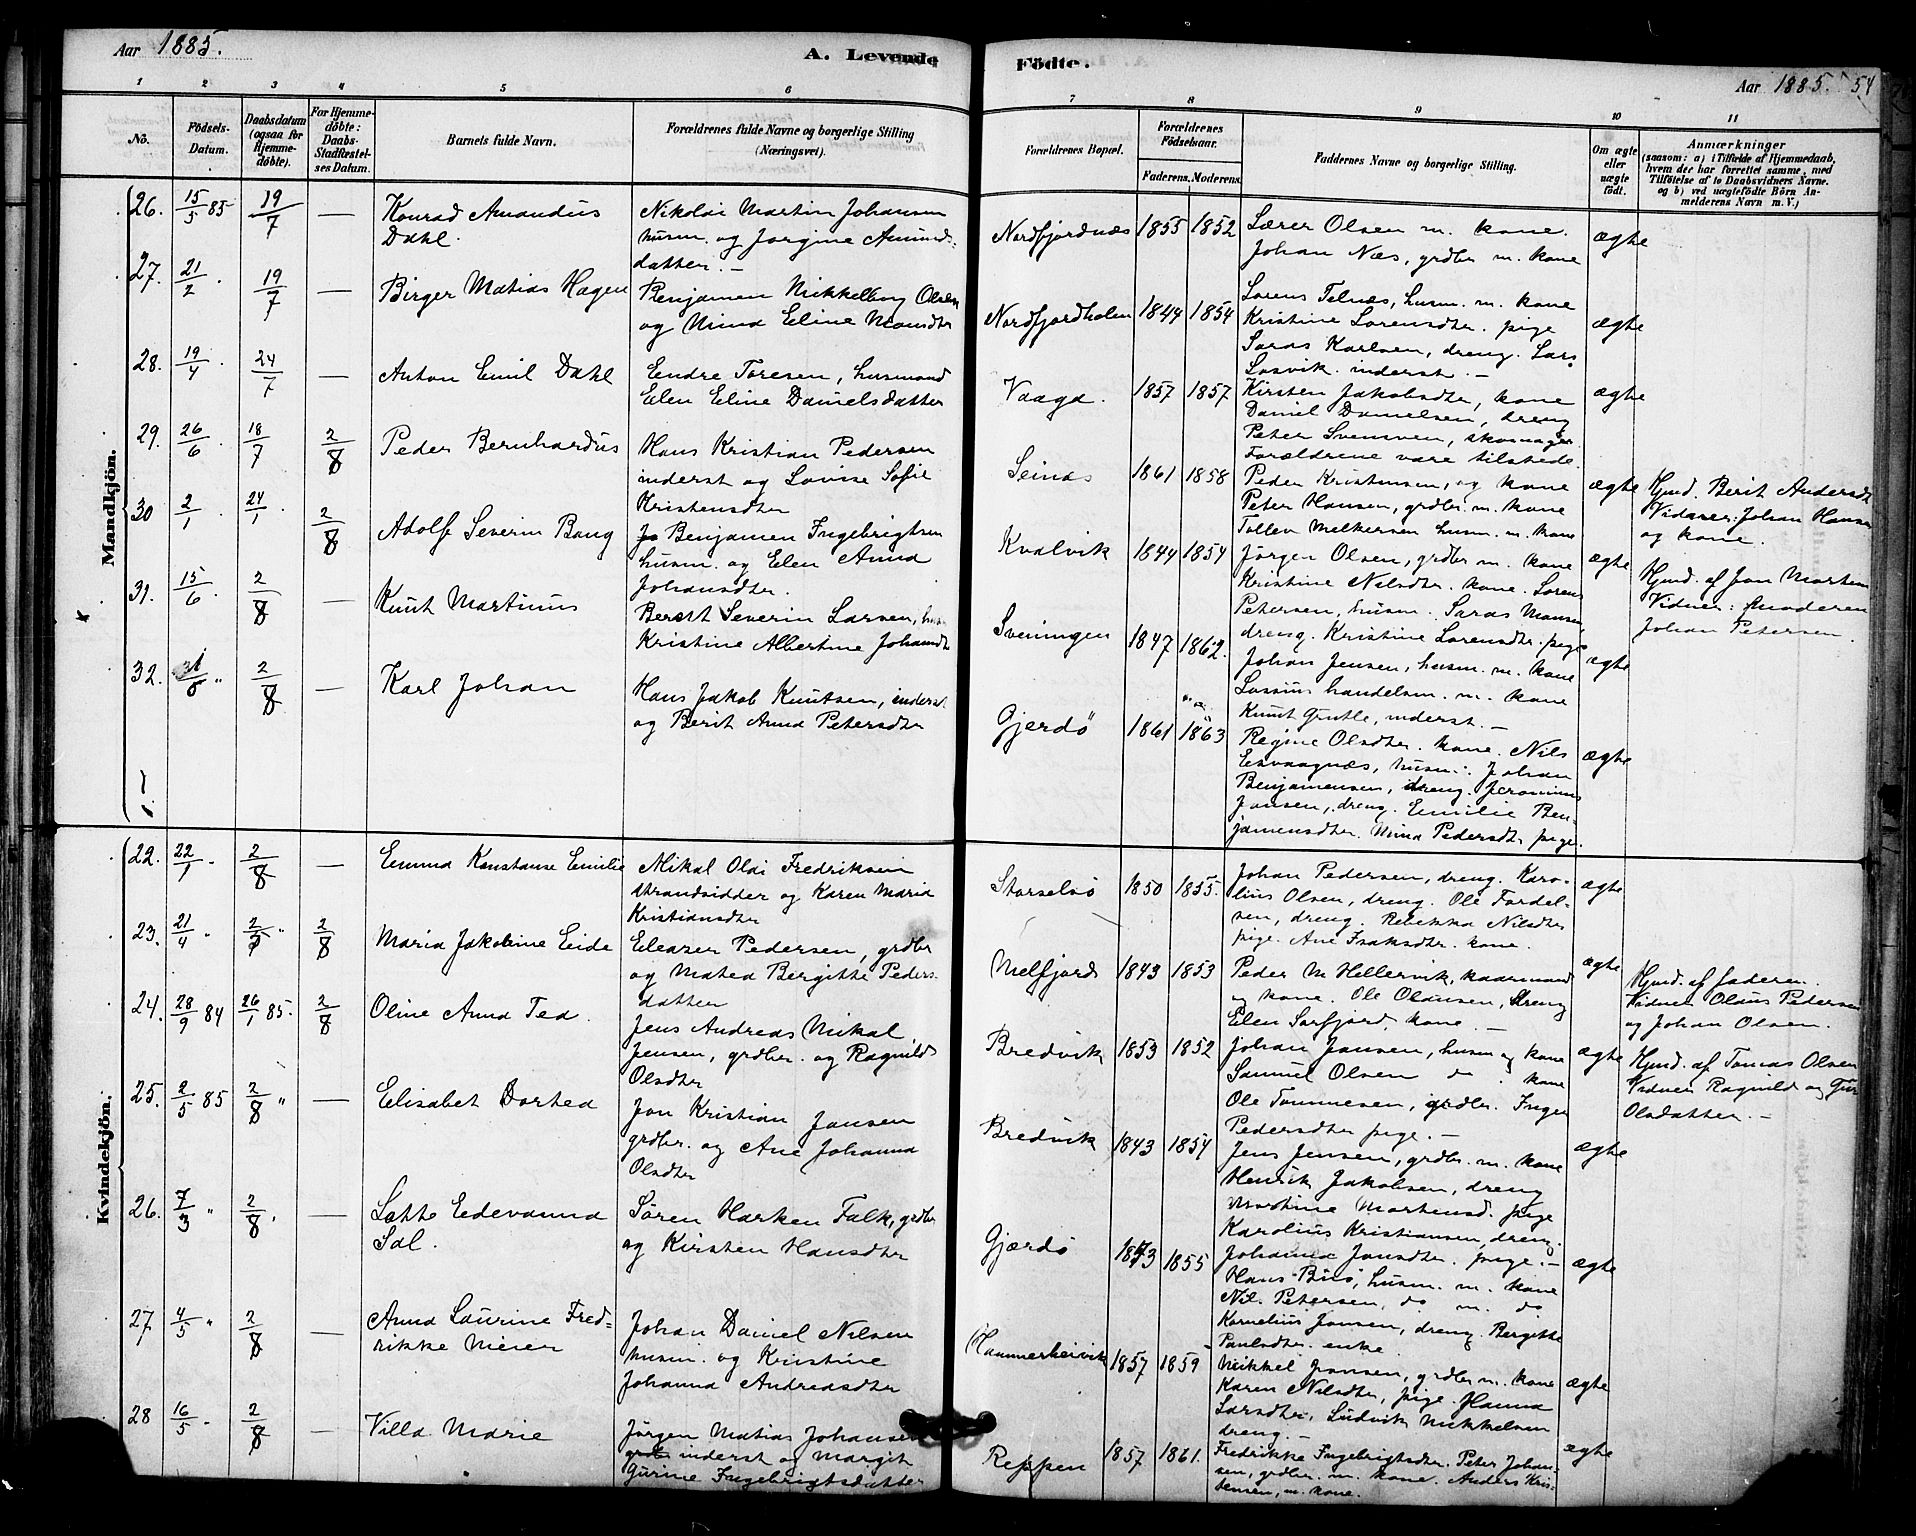 Aar 1885.
A. Levende Födte.
Aar 1885. 54
1 2 3 4 5 6 7 8 9 10 11
No.
Födsels-Datum.
Daabsdatum (ogsaa for Hjemme-döbte).
For Hjemme-döbte: Daabs-Stadfæstel-ses Datum.
Barnets fulde Navn.
Forældrenes fulde Navne og borgerlige Stilling (Næringsvei).
Forældrenes Bopæl.
Forældrenes Födselsaar.
Faderens. Moderens.
Faddernes Navne og borgerlige Stilling.
Om ægte eller uægte födt.
Anmærkninger
(saasom: a) i Tilfælde af Hjemmedaab,
hvem der har forrettet samme, med
Tilföielse af to Daabsvidners Navne.
og b) ved uægtefödte Börn An-
melderens Navn m. V.)
Mandkjön.
26. 15/5 85 19/7 — Konrad Amandus
Dahl.
Nikolai Martin Johansen
husm. og Jorgine Amunds-
datter. —
Nordfjordnæs 1855 1852
Lærer Olsen m. kone.
Johan Næs, grdbr m. kone
ægte
27. 21/2 . 19/7 — Birger Matias Hagen
Benjamen Mikkelborg Olsen
og Anna Eline Monsdtr
Nordfjordholm 1844 1854
Lorens Telnæs, husm. m. kone
Kristine Lorensdtr. pige
Saras Karlsen, dreng. Lars
Losvik. inderst. —
ægte
28. 19/4 . 24/7 — Anton Emil Dahl
Endre Toresen, husmand
Elen Eline Danielsdatter
Vaaga. 1857 1857
Kirsten Jakobsdtr, kone
Daniel Danielsen, dreng
Peter Svensven, skomager.
Forældrene vare tilstede.
ægte
29. 26/6 . 18/7 2/8 Peder Bernhardus
Hans Kristian Pedersen
inderst og Lovise Sofie
Kristensdtr
Seinæs 1861 1858
Peder Kristensen, og kone
Peter Hansen, grdbr. m. kone
Tollev Melkersen husm. m. kone
ægte
Hjmd. Berit Andersdt
Vidner: Johan Hansen
og kone.
30 2/1 . 24/1 . 2/8 Adolf Severin Bang
Benjamen Ingebrigtsen
husm. og Elen Anna
Johansdtr.
Kvalvik 1844 1854
Jörgen Olsen, grdbr m. kone
Kristine Nilsdtr. kone. Lorens
Petersen, husm. Saras Monsen,
dreng. Kristine Lorensdtr. pige
ægte
Hjmd. af Jon Morten
Vidner: Moderen
Johan Petersen.
31. 15/6 . 2/8 — Knut Martinus
Berett Severin Larsen, husm
Kristine Albertine Johansdtr
Sveningen 1847 1862.
Johan Jensen, husm. m. kone
Lossius handelsm. m. kone
Knut Grutle, inderst. —
ægte
32. 2/8 — Karl Johan
Hans Jakob Knutsen, inderst
og Berit Anna Petersdtr
Gjerdö 1861 1863
Regine Olsdtr. kone. Nils
Esvaagnæs, husm. Johan
Benjamensen, dreng. Jeronimus
Jansen, dreng. Emilie Ben-
jamensdtr. Anna Pedersdtr pige.
ægte
Kvindekjön.
22. 22/1 . 2/8 — Emma Konstanse Emilie
Mikal Olai Fredriksen
strandsidder og Karen Maria
Kristiansdtr
Storselsö 1850 1855.
Johan Pedersen, dreng. Karo-
lius Olsen, dreng. Ole Fordel-
sen, dreng. Rebekka Nilsdtr
pige. Ane Isaksdtr. kone.
ægte
23. 21/4 " 2/8 Maria Jakobine Eide
Eleazer Pedersen, grdbr
og Matea Bergitte Peders-
datter
Melfjord 1843 1853
Peder M Hellervik, kaarmand
og kone. Ole Olausen, dreng
Elen Sörfjord, kone. —
ægte
Hjmd. af faderen.
Vidner Olaus Pedersen
og Johan Olsen.
24. 28/9 84 26/1 85. 2/8 Oline Anna Tea.
Jens Andreas Mikal
Jensen, grdbr. og Ragnild
Olsdtr
Bredvik 1853 1852
Johan Jansen, husm og kone
Samuel Olsen do. kone
Ole Tommesen, grdbr. Inger
Pedersdtr pige. —
ægte
Hjmd. af Tomas Olsen
Vidner Ragnild og
Olsdatter. —
25. 2/5 85 2/8 " — Elisabet Dortea
Jon Kristian Jansen
grdbr. og Ane Johanna
Olsdtr
Bredvik 1843 1854
Jens Jensen, grdbr. m. kone
Henrik Jakobsen, dreng
Martine Mortensd. pige
Karolius Kristiansen, dreng.
Johanna Jansdtr. pige. —
ægte
26. 7/3 " 2/8 . — Lotte Edevanna
Sal.
Sören Harken Falk, grdbr
og Kirsten Hansdtr
Gjærdö 1853 1855
Hans Buö, husm. m. kone
Nil. Petersen, do m. do
Kornelius Jonsen, dreng. Bergitte
Paulsdtr. enke.
ægte
27 4/5 " 2/8 — Anna Laurine Fred=
rikke Meier
Johan Daniel Nilsen
husm. og Kristine
Johanna Andreasdtr
Hammerheivik 1857 1859
Mikkel Jonsen, grdbr m. kone
Karen Nilsdtr, pige. Hanna
Larsdtr, Ludvik Mikkelsen
dreng. —
ægte
28 16/5 . 2/8 — Villa Marie
Jörgen Matias Johansen
inderst og Margit
Gurine Ingebrigtsdatter
Reppen 1857 1861.
Fredrikke Ingebrigtsdtr. Peter Johan-
sen, grdbr. m. kone. Anders Kris-
tensen, m. kone.
ægte